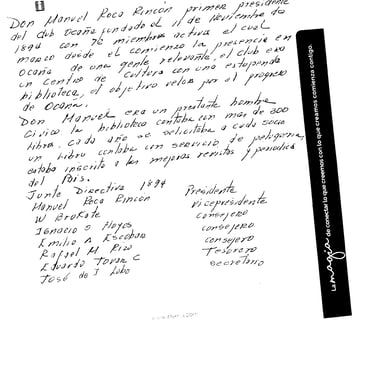 Don Manuel Roca Rincón primer presidente
del club Ocaña fundado el 11 de Noviembre de
1894 con 76 miembros activa el cual
marco desde el comienzo la presencia en
Ocaña de una gente relevante, el club era
un Centro de Cultura con una estupenda
biblioteca, el objetivo velar por el progreso
de Ocaña.
Don Manuel era un prestante hombre
Cívico la biblioteca contaba con mas de 300
libros. Cada año se solicitaba a cada socio
un libro contaba con servicio de
estaba inscrito a las mejores revistas y periodico
del País.
Junta Directiva 1894
Manuel Roca Rincon Presidente
W Brokate vicepresidente
Ignacio S Hoyos consejero
Emilio A Escobar consejero
Rafael M Rizo consejero
Eduardo Tovar C Tesorero
José de J Lobo secretario
La magia de conectar lo que creemos con lo que creamos comienza contigo.